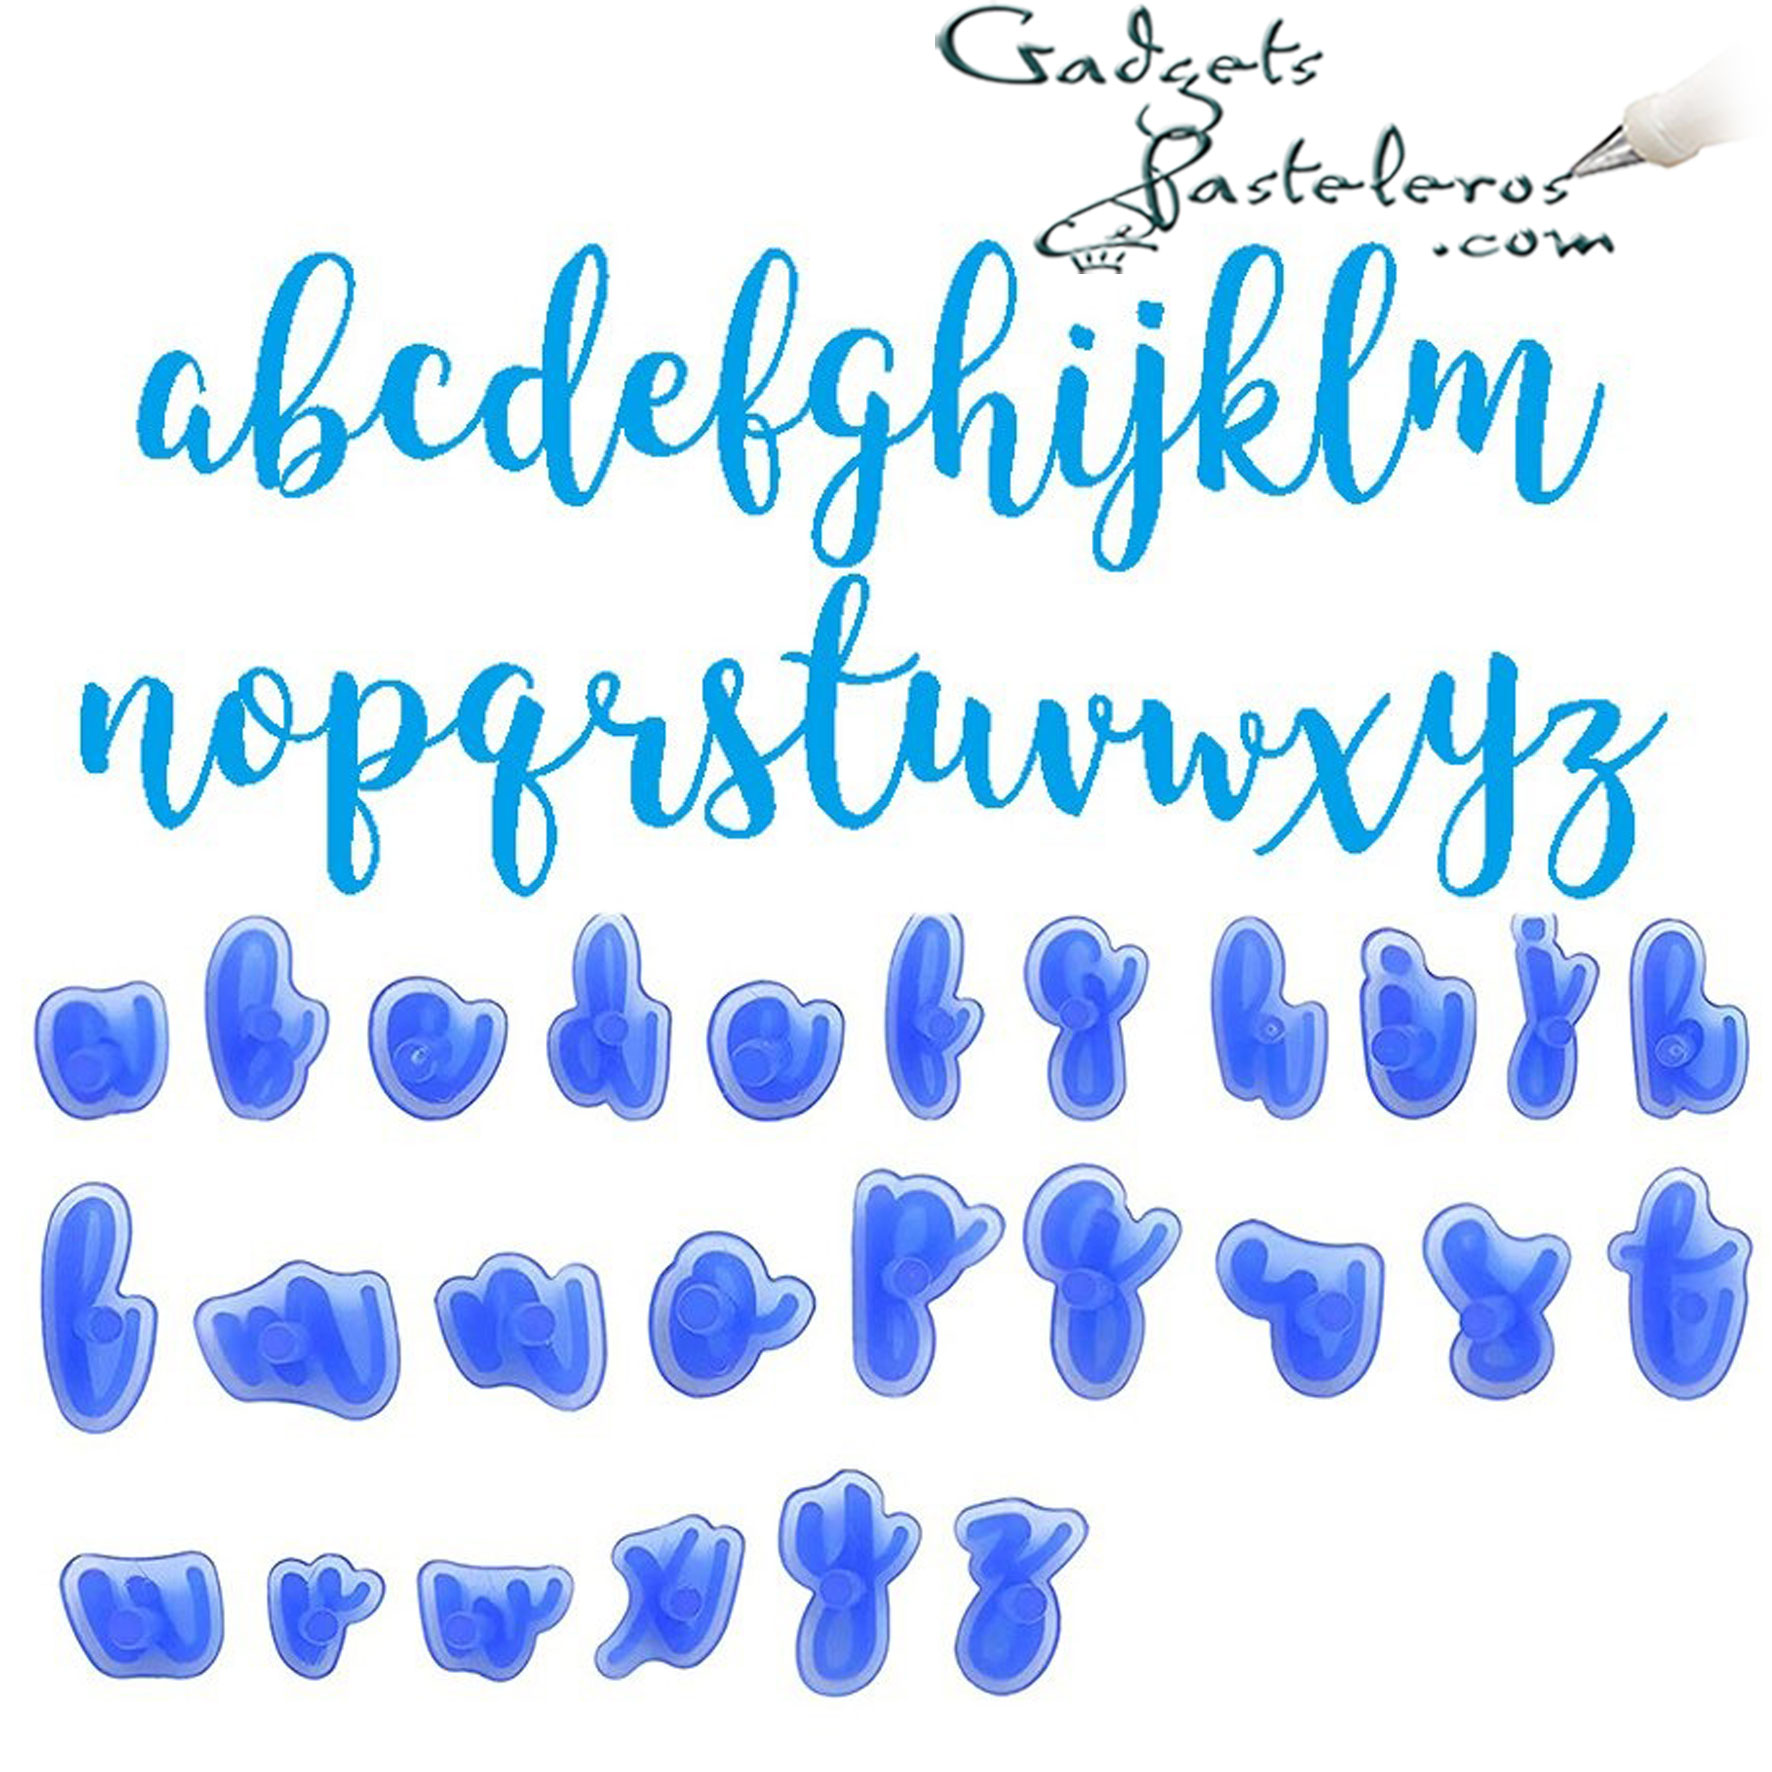 Gadgets
Pasteleros
.com
abcdefghijklm
nopqrstuvwxyz
a b c d e f g h i j k
l m n o p q r s t
u v w x y z